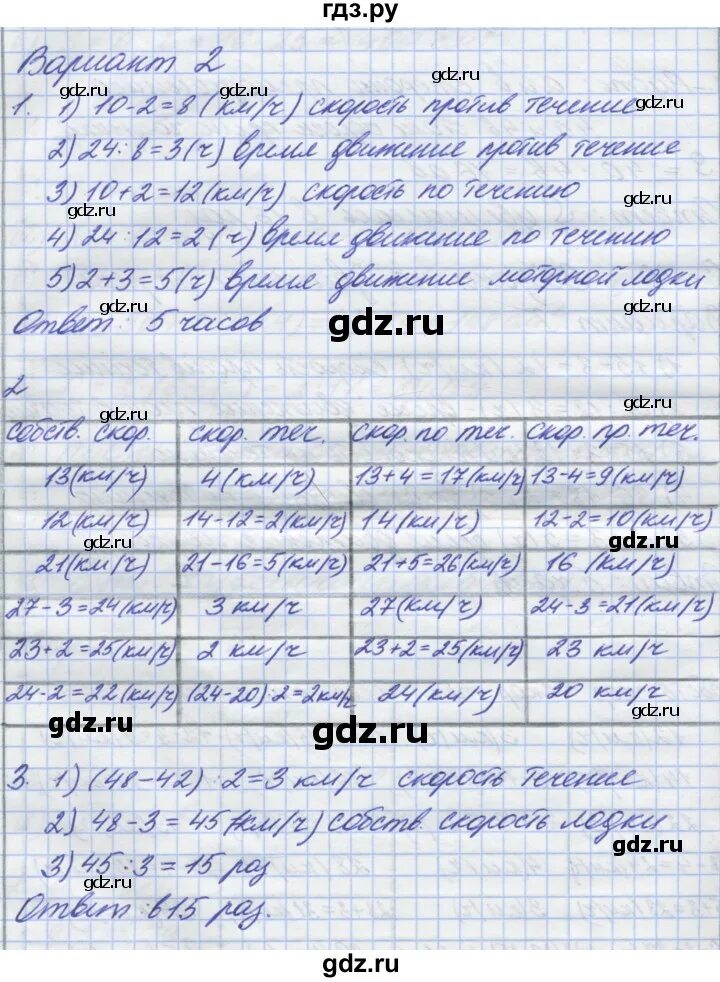 гдз.ру
Вариант 2
gdz.ru
gdz.ru
1. 1) 10-2=8 (км/ч) скорость против течение
gdz.ru
2) 24:8=3(ч) время движение против течение
gdz.ru
3) 10+2=12(км/ч) скорость по течению
gdz.ru
gdz.ru
4) 24:12=2 (ч) время движение по течению
gdz.ru
5) 2+3=5(ч) время движение моторной лодки
gdz.ru
gdz.ru
Ответ: 5 часов
gdz.ru
2
gdz.ru
gdz.ru
собств. скор. скор. теч. скор. по теч. скор. пр. теч.
13(км/ч) 4(км/ч) 13+4=17(км/ч) 13-4=9(км/ч)
gdz.ru
gdz.ru
12(км/ч) 14-12=2(км/ч) 14(км/ч) 12-2=10(км/ч)
gdz.ru
gdz.ru
21(км/ч) 21-16=5(км/ч) 21+5=26(км/ч) 16 (км/ч)
27-3=24(км/ч) 3 км/ч 27(км/ч) 24-3=21(км/ч)
gdz.ru
gdz.ru
23+2=25(км/ч) 2 км/ч 23+2=25(км/ч) 23 км/ч
24-2=22(км/ч) (24-20):2=2км/ч 24(км/ч) 20 км/ч
gdz.ru
gdz.ru
gdz.ru
3. 1) (48-42):2=3 км/ч скорость течение
2) 48-3=45(км/ч) собств. скорость лодки
gdz.ru
3) 45:3=15 раз
gdz.ru
Ответ: в 15 раз.
gdz.ru
gdz.ru